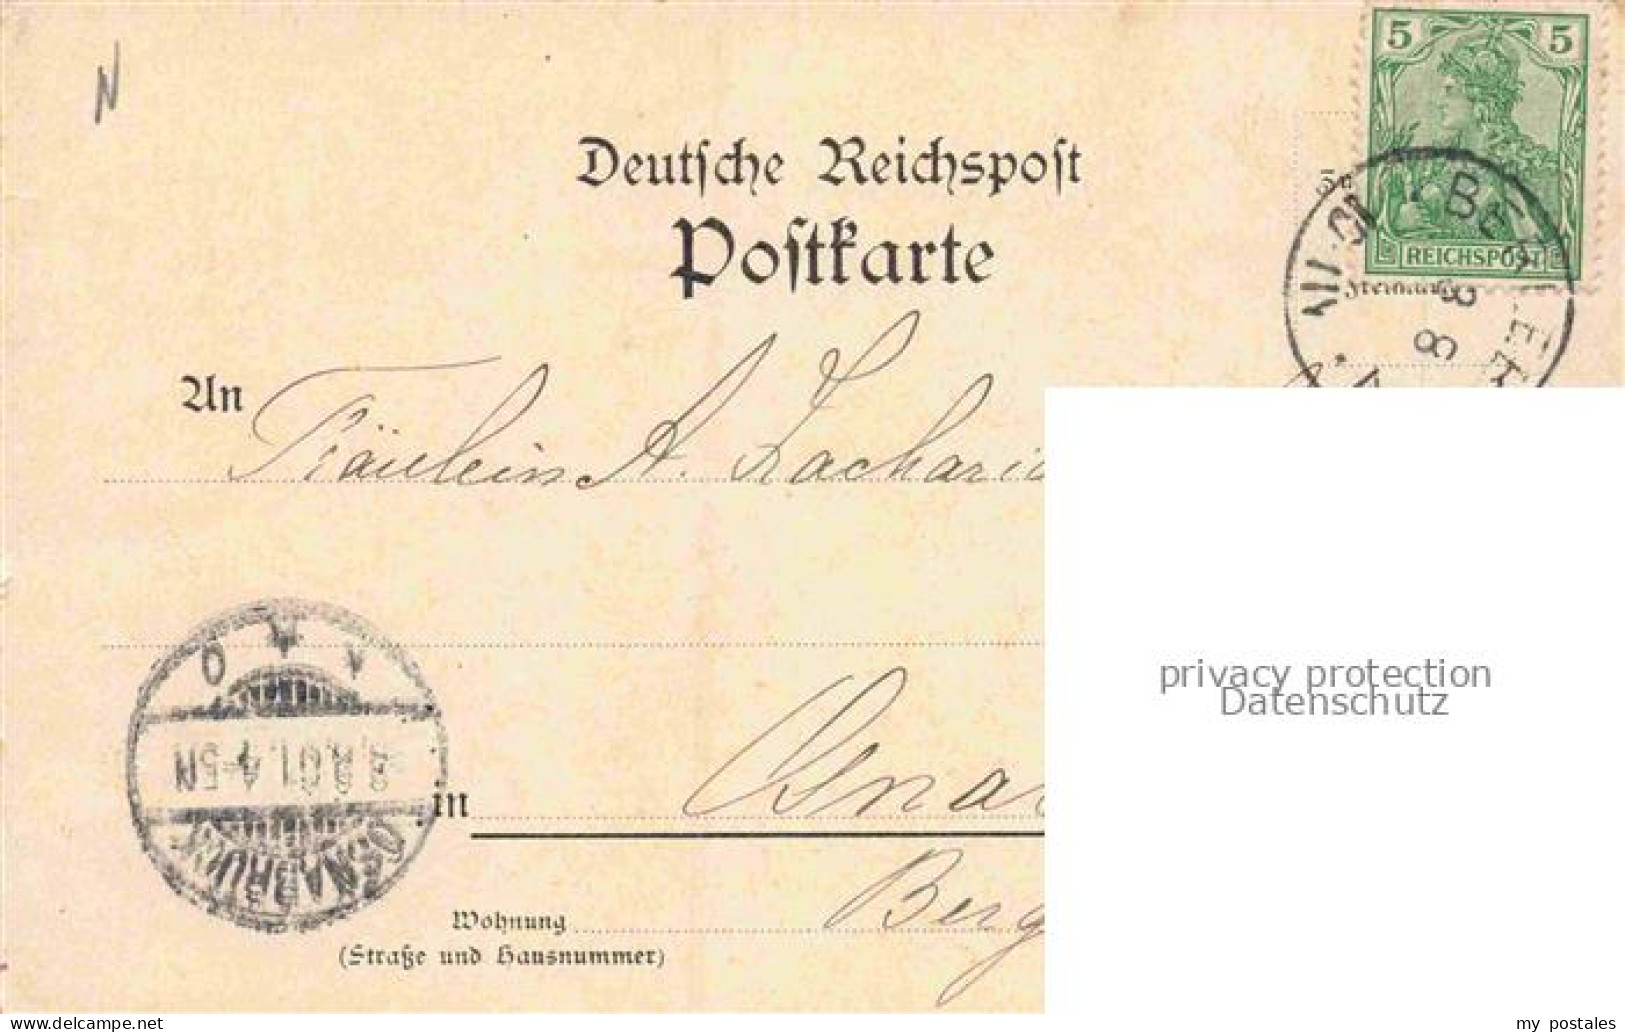 N
5 5
REICHSPOST
Deutsche Reichspost
Postkarte
8 8
An Fräulein A. Zachari
8.8.01.4-5N
OSNABRÜCK
in Osna
Wohnung Berg
(Straße und Hausnummer)
privacy protection
Datenschutz
my_postales
www.delcampe.net